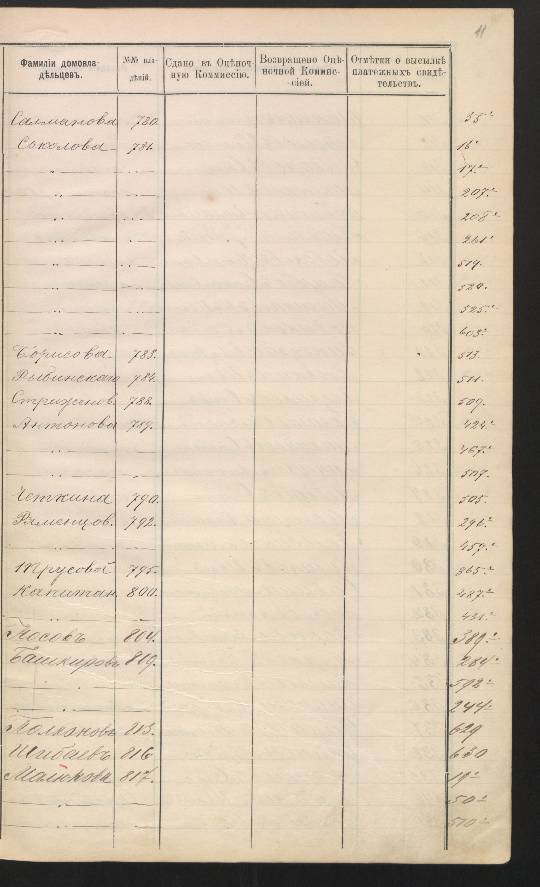 11
Фамиліи домовла-дѣльцевъ. №№ вла-дѣній. Сдано въ Оцѣноч-ную Коммиссію. Возвращено Оцѣ-ночной Коммис-сіей. Отмѣтки о высылкѣ платежныхъ свидѣ-тельствъ.
Салманова 780. 35.
Соколова 781. 16
„ „ 17.
„ „ 207.
„ „ 208
„ „ 261.
„ „ 519.
„ „ 520.
„ „ 525.
„ „ 603.
Борисова 783. 513.
Рыбинскаго 784. 511.
788. 509.
Антонова 789. 424.
„ „ 467.
„ „ 507.
Четкина 790. 505.
Раменцов. 792. 296.
„ „ 459.
Трусовой 795. 365.
Капитан. 800. 487.
„ „ 431.
Посовъ 804. 389.
Башкировъ 810. 284.
„ „ 592
„ „ 244
Полкановъ 813. 629
Шибаевъ 816 630
Малюкова 817. 19
„ „ 50
„ „ 510